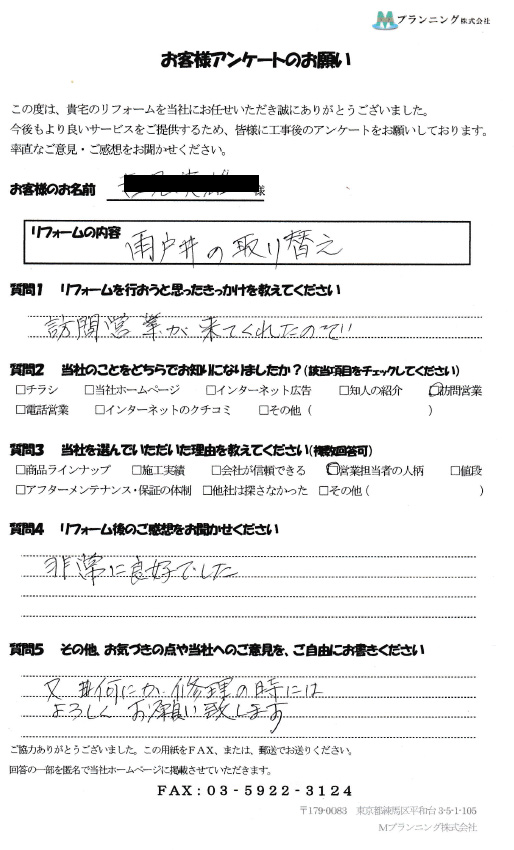 Mプランニング株式会社
お客様アンケートのお願い
この度は、貴宅のリフォームを当社にお任せいただき誠にありがとうございました。
今後もより良いサービスをご提供するため、皆様に工事後のアンケートをお願いしております。
率直なご意見・ご感想をお聞かせください。
お客様のお名前 様
リフォームの内容
雨戸井の取り替え
質問1 リフォームを行おうと思ったきっかけを教えてください
訪問営業が来てくれたので
質問2 当社のことをどちらでお知りになりましたか?(該当項目をチェックしてください)
□チラシ □当社ホームページ □インターネット広告 □知人の紹介 □訪問営業
□電話営業 □インターネットのクチコミ □その他 ( )
質問3 当社を選んでいただいた理由を教えてください(複数回答可)
□商品ラインナップ □施工実績 □会社が信頼できる □営業担当者の人柄 □値段
□アフターメンテナンス・保証の体制 □他社は探さなかった □その他 ( )
質問4 リフォーム後のご感想をお聞かせください
非常に良好でした
質問5 その他、お気づきの点や当社へのご意見を、ご自由にお書きください
又 何にか修理の時には
よろしく お願い致します
ご協力ありがとうございました。この用紙をFAX、または、郵送でお送りください。
回答の一部を匿名で当社ホームページに掲載させていただきます。
FAX:03-5922-3124
〒179-0083 東京都練馬区平和台3-5-1-105
Mプランニング株式会社